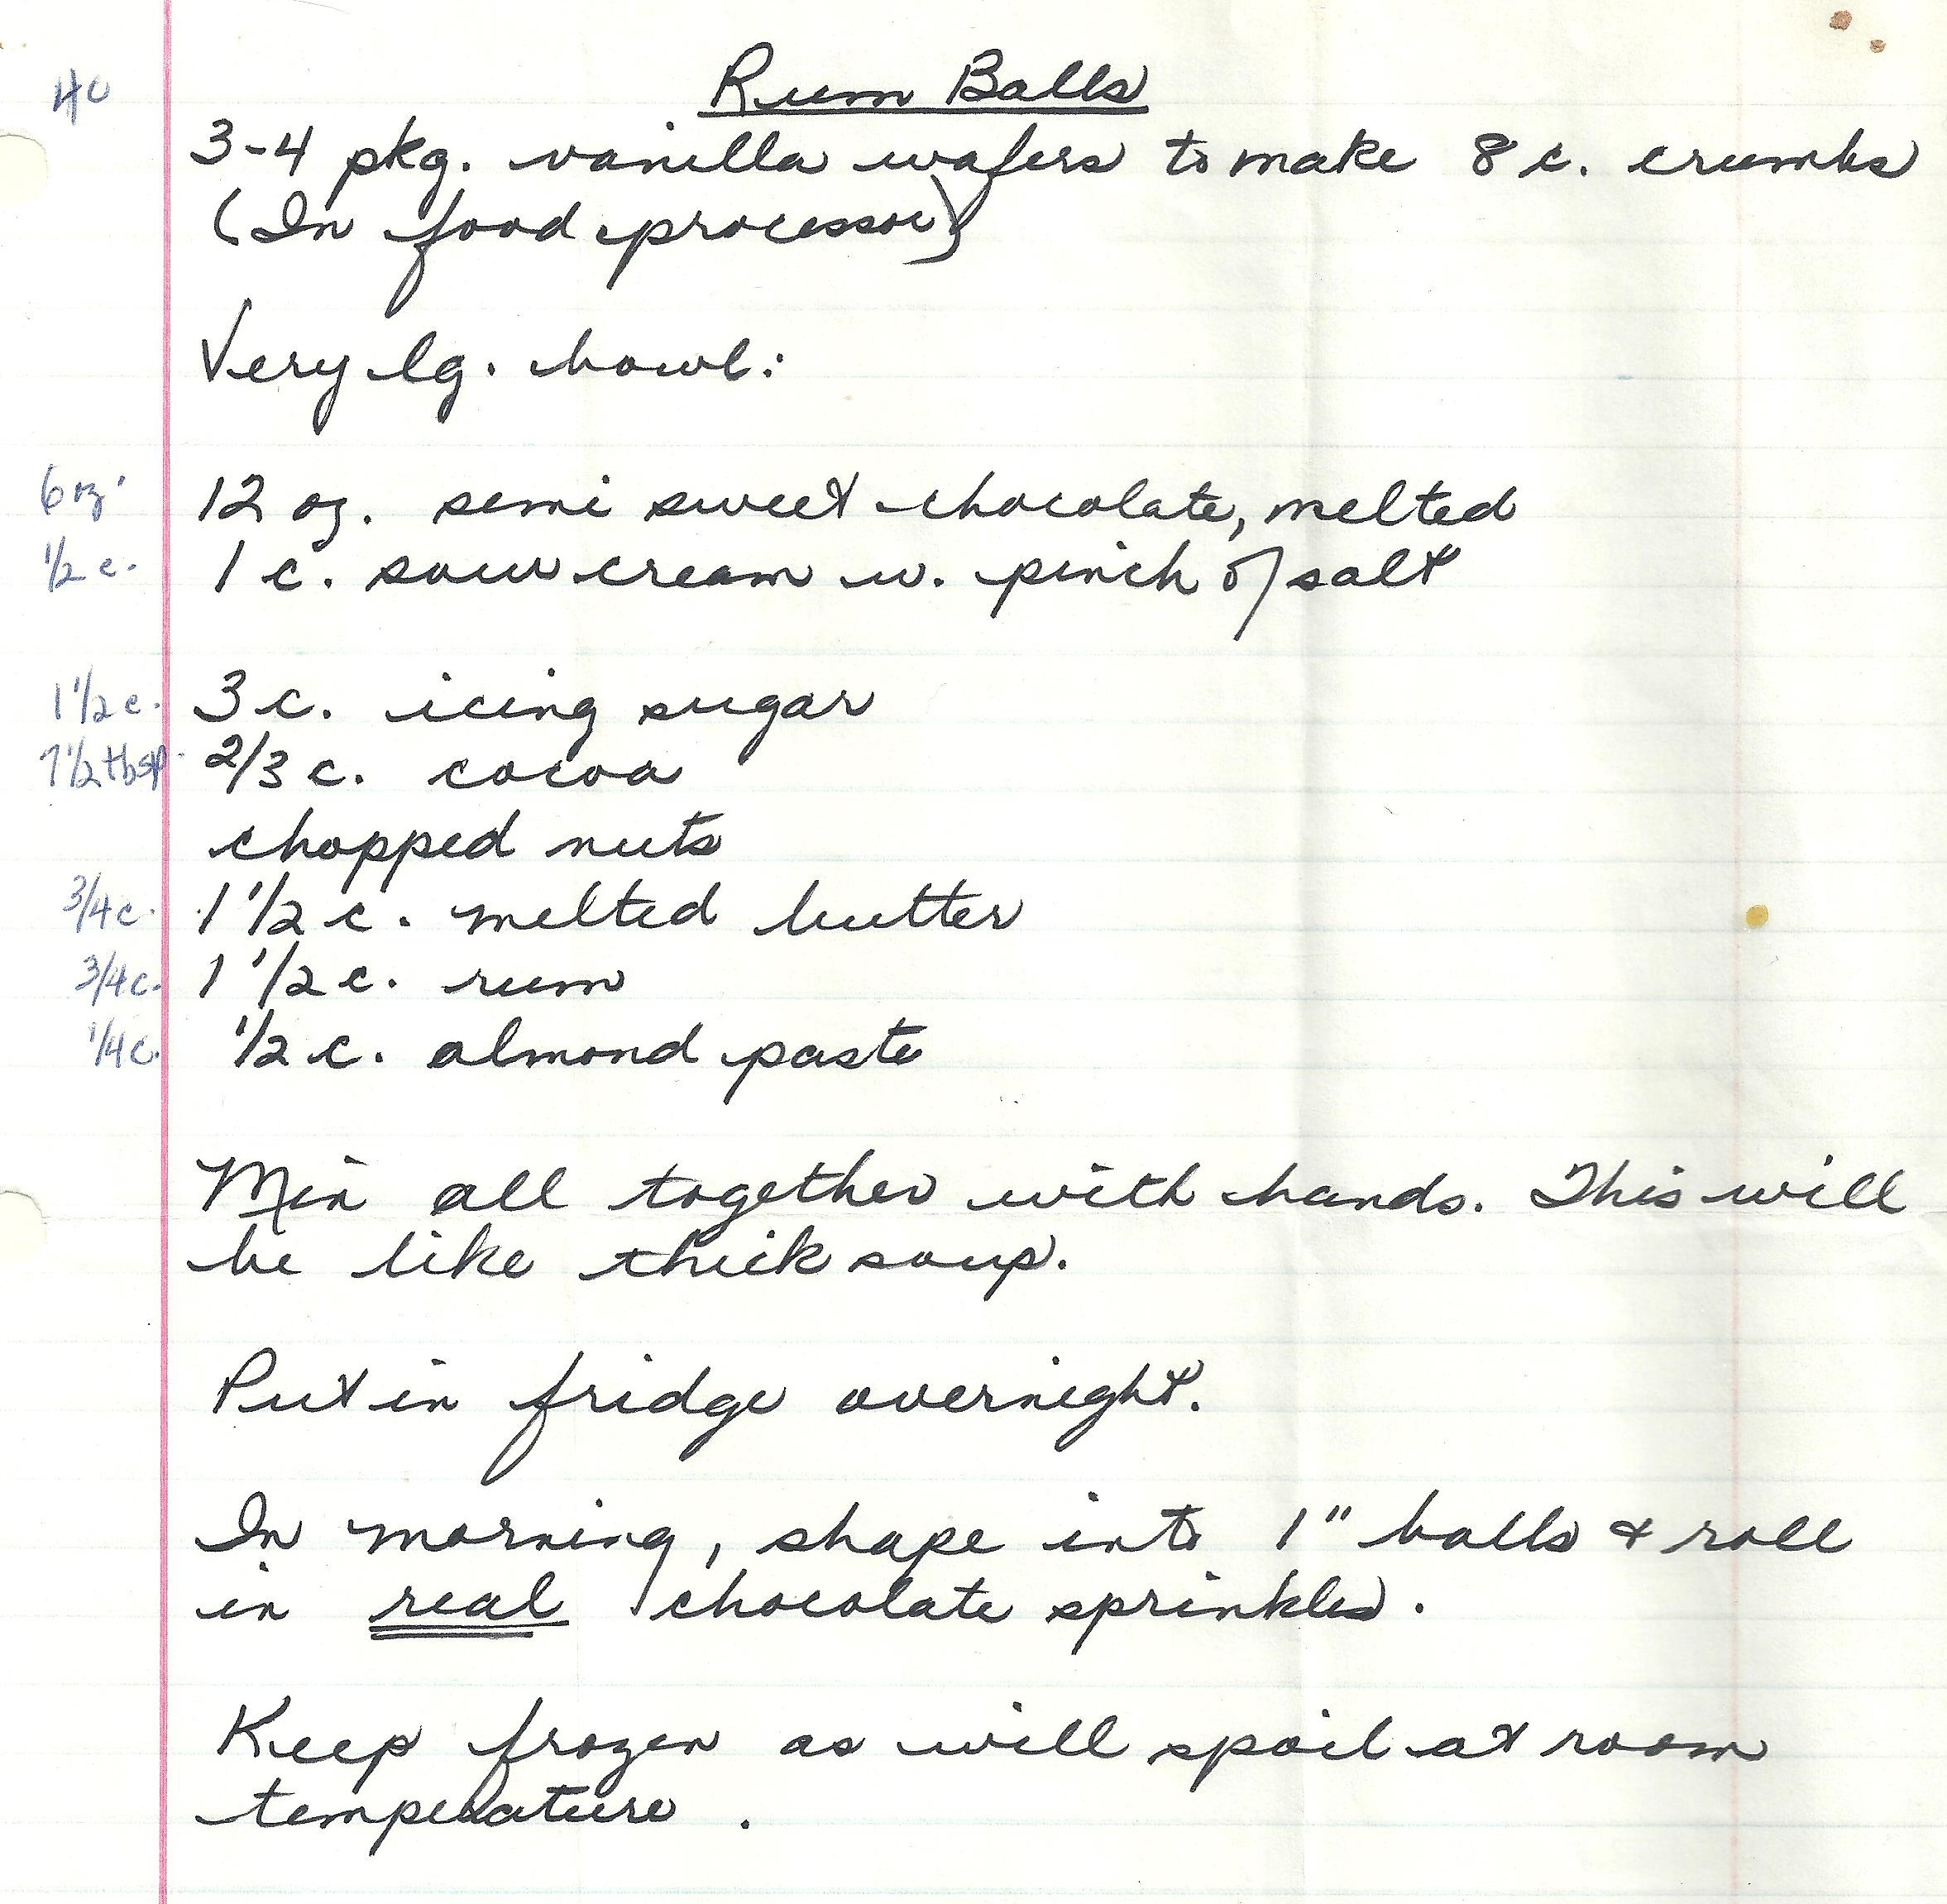 Rum Balls
4c 3-4 pkg. vanilla wafers to make 8 c. crumbs
(In food processor)
Very lg. bowl:
6 oz. 12 oz. semi sweet chocolate, melted
1/2 c. 1 c. sour cream w. pinch of salt
1 1/2 c. 3 c. icing sugar
2/3 c. cocoa
chopped nuts
3/4 c. 1 1/2 c. melted butter
3/4 c. 1 1/2 c. rum
1/4 c. 1/2 c. almond paste
Mix all together with hands. This will
be like thick soup.
Put in fridge overnight.
In morning, shape into 1" balls & roll
in real chocolate sprinkles.
Keep frozen as will spoil at room
temperature.